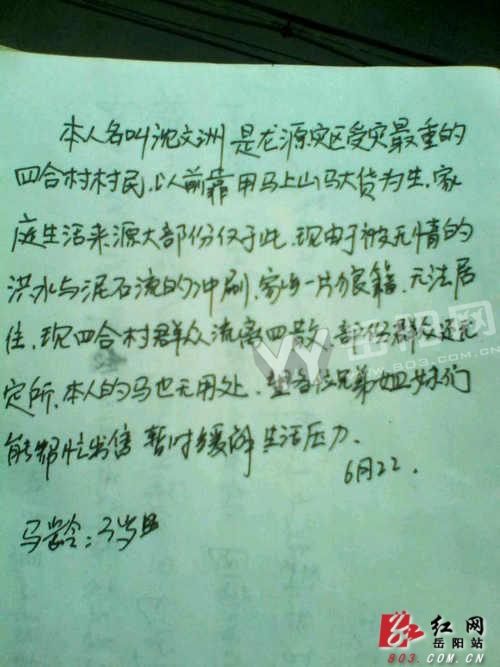 本人名叫沈文洲 是龙源灾区受灾最重的
四合村村民，以前靠用马上山马大货为生，家
庭生活来源大部份仅于此，现由于被无情的
洪水与泥石流的冲刷，家与一片狼籍，无法居
住，现四合村群众流离四散，部份群众还无
定所，本人的马也无用处，望各位兄弟姐妹们
能帮忙出售 暂时缓解生活压力.
6月22.
马龄：3岁
YY岳阳网
www.803.com.cn
红网
岳阳站
803.COM.CN